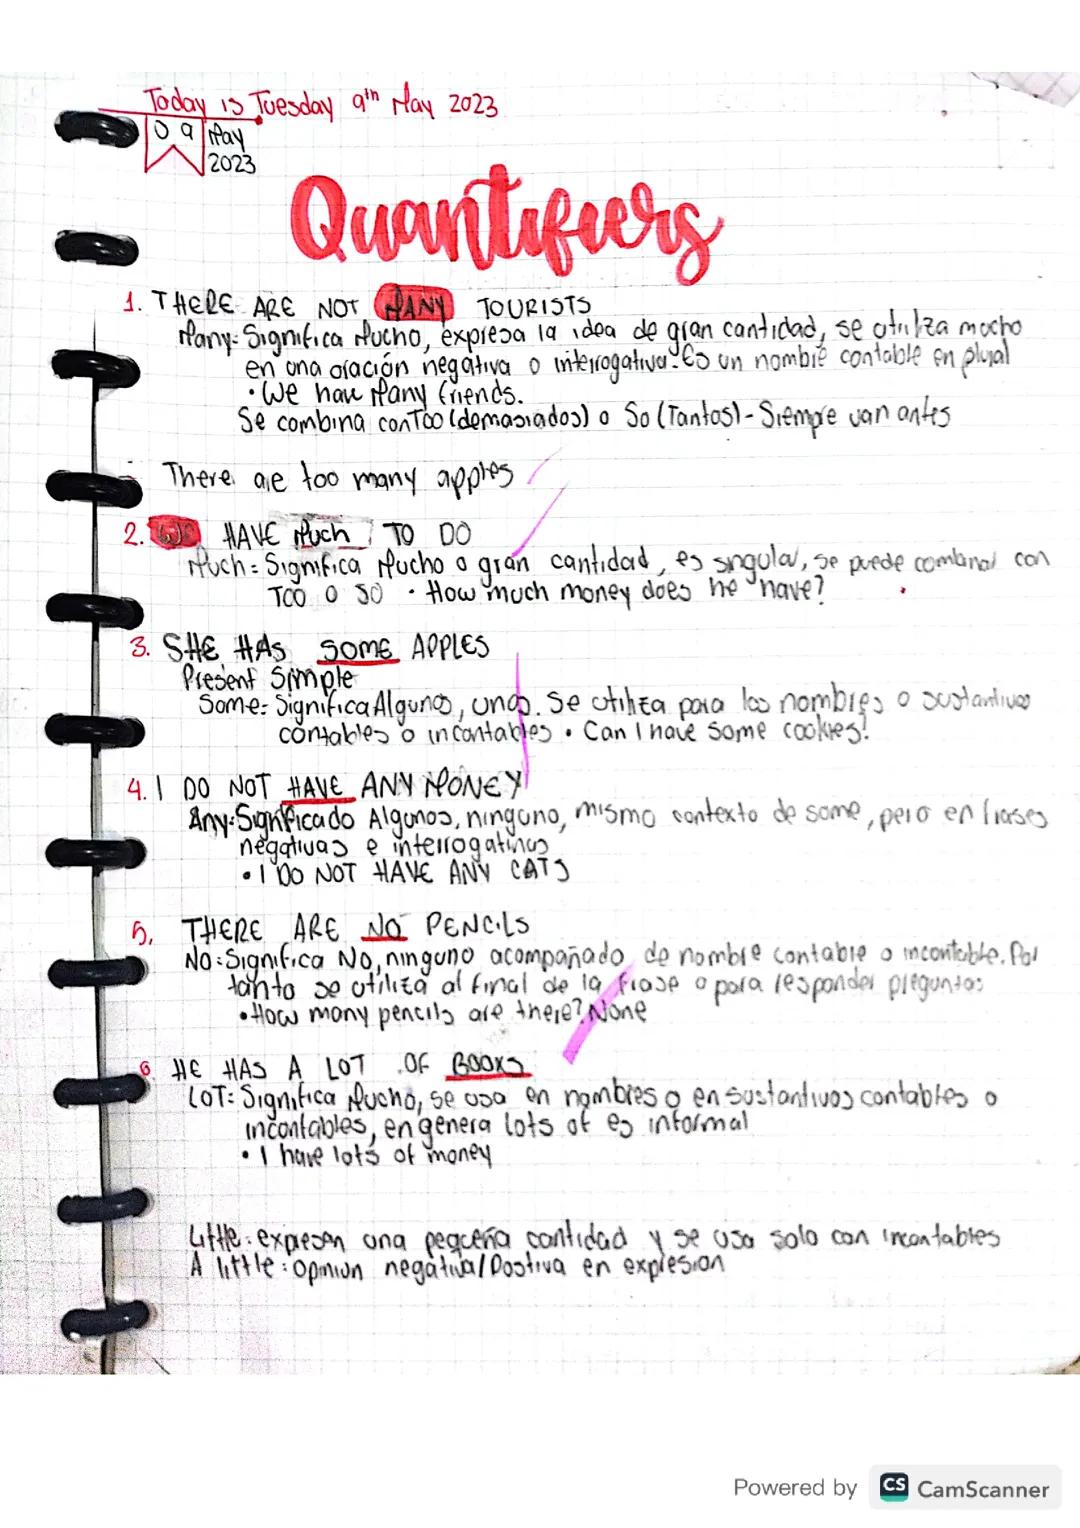 Today is Tuesday 9th May 2023
09 May
2023
Quantifiers
1. THERE ARE NOT MANY TOURISTS
Many: Significa Mucho, expresa la idea de gran cantidad, se utiliza mucho
en una oración negativa o interrogativa. Es un nombre contable en plural
• We have Many friends.
Se combina con Too (demasiados) o So (Tantos) - Siempre van antes
There are too many apples
2. WE HAVE Much TO DO
Much = Significa Mucho o gran cantidad, es singular, se puede combinar con
TOO O SO • How much money does he have?
3. SHE HAS SOME APPLES
Present Simple
Some: Significa Algunos, unos. Se utiliza para los nombres o sustantivos
contables o incontables • Can I have some cookies?
4. I DO NOT HAVE ANY MONEY
Any: Significado Algunos, ninguno, mismo contexto de some, pero en frases
negativas e interrogativas
• I DO NOT HAVE ANY CATS
5. THERE ARE NO PENCILS
No: Significa No, ninguno acompañado de nombre contable o incontable. Por
tanto se utiliza al final de la frase o para responder preguntas
• How many pencils are there? None
6. HE HAS A LOT OF BOOKS
LOT: Significa Mucho, se usa en nombres o en sustantivos contables o
incontables, en genera lots of es informal
• I have lots of money
Little: expresan una pequeña cantidad y se usa solo con incontables
A little: opinion negativa/Postiva en expresion
Powered by CS CamScanner